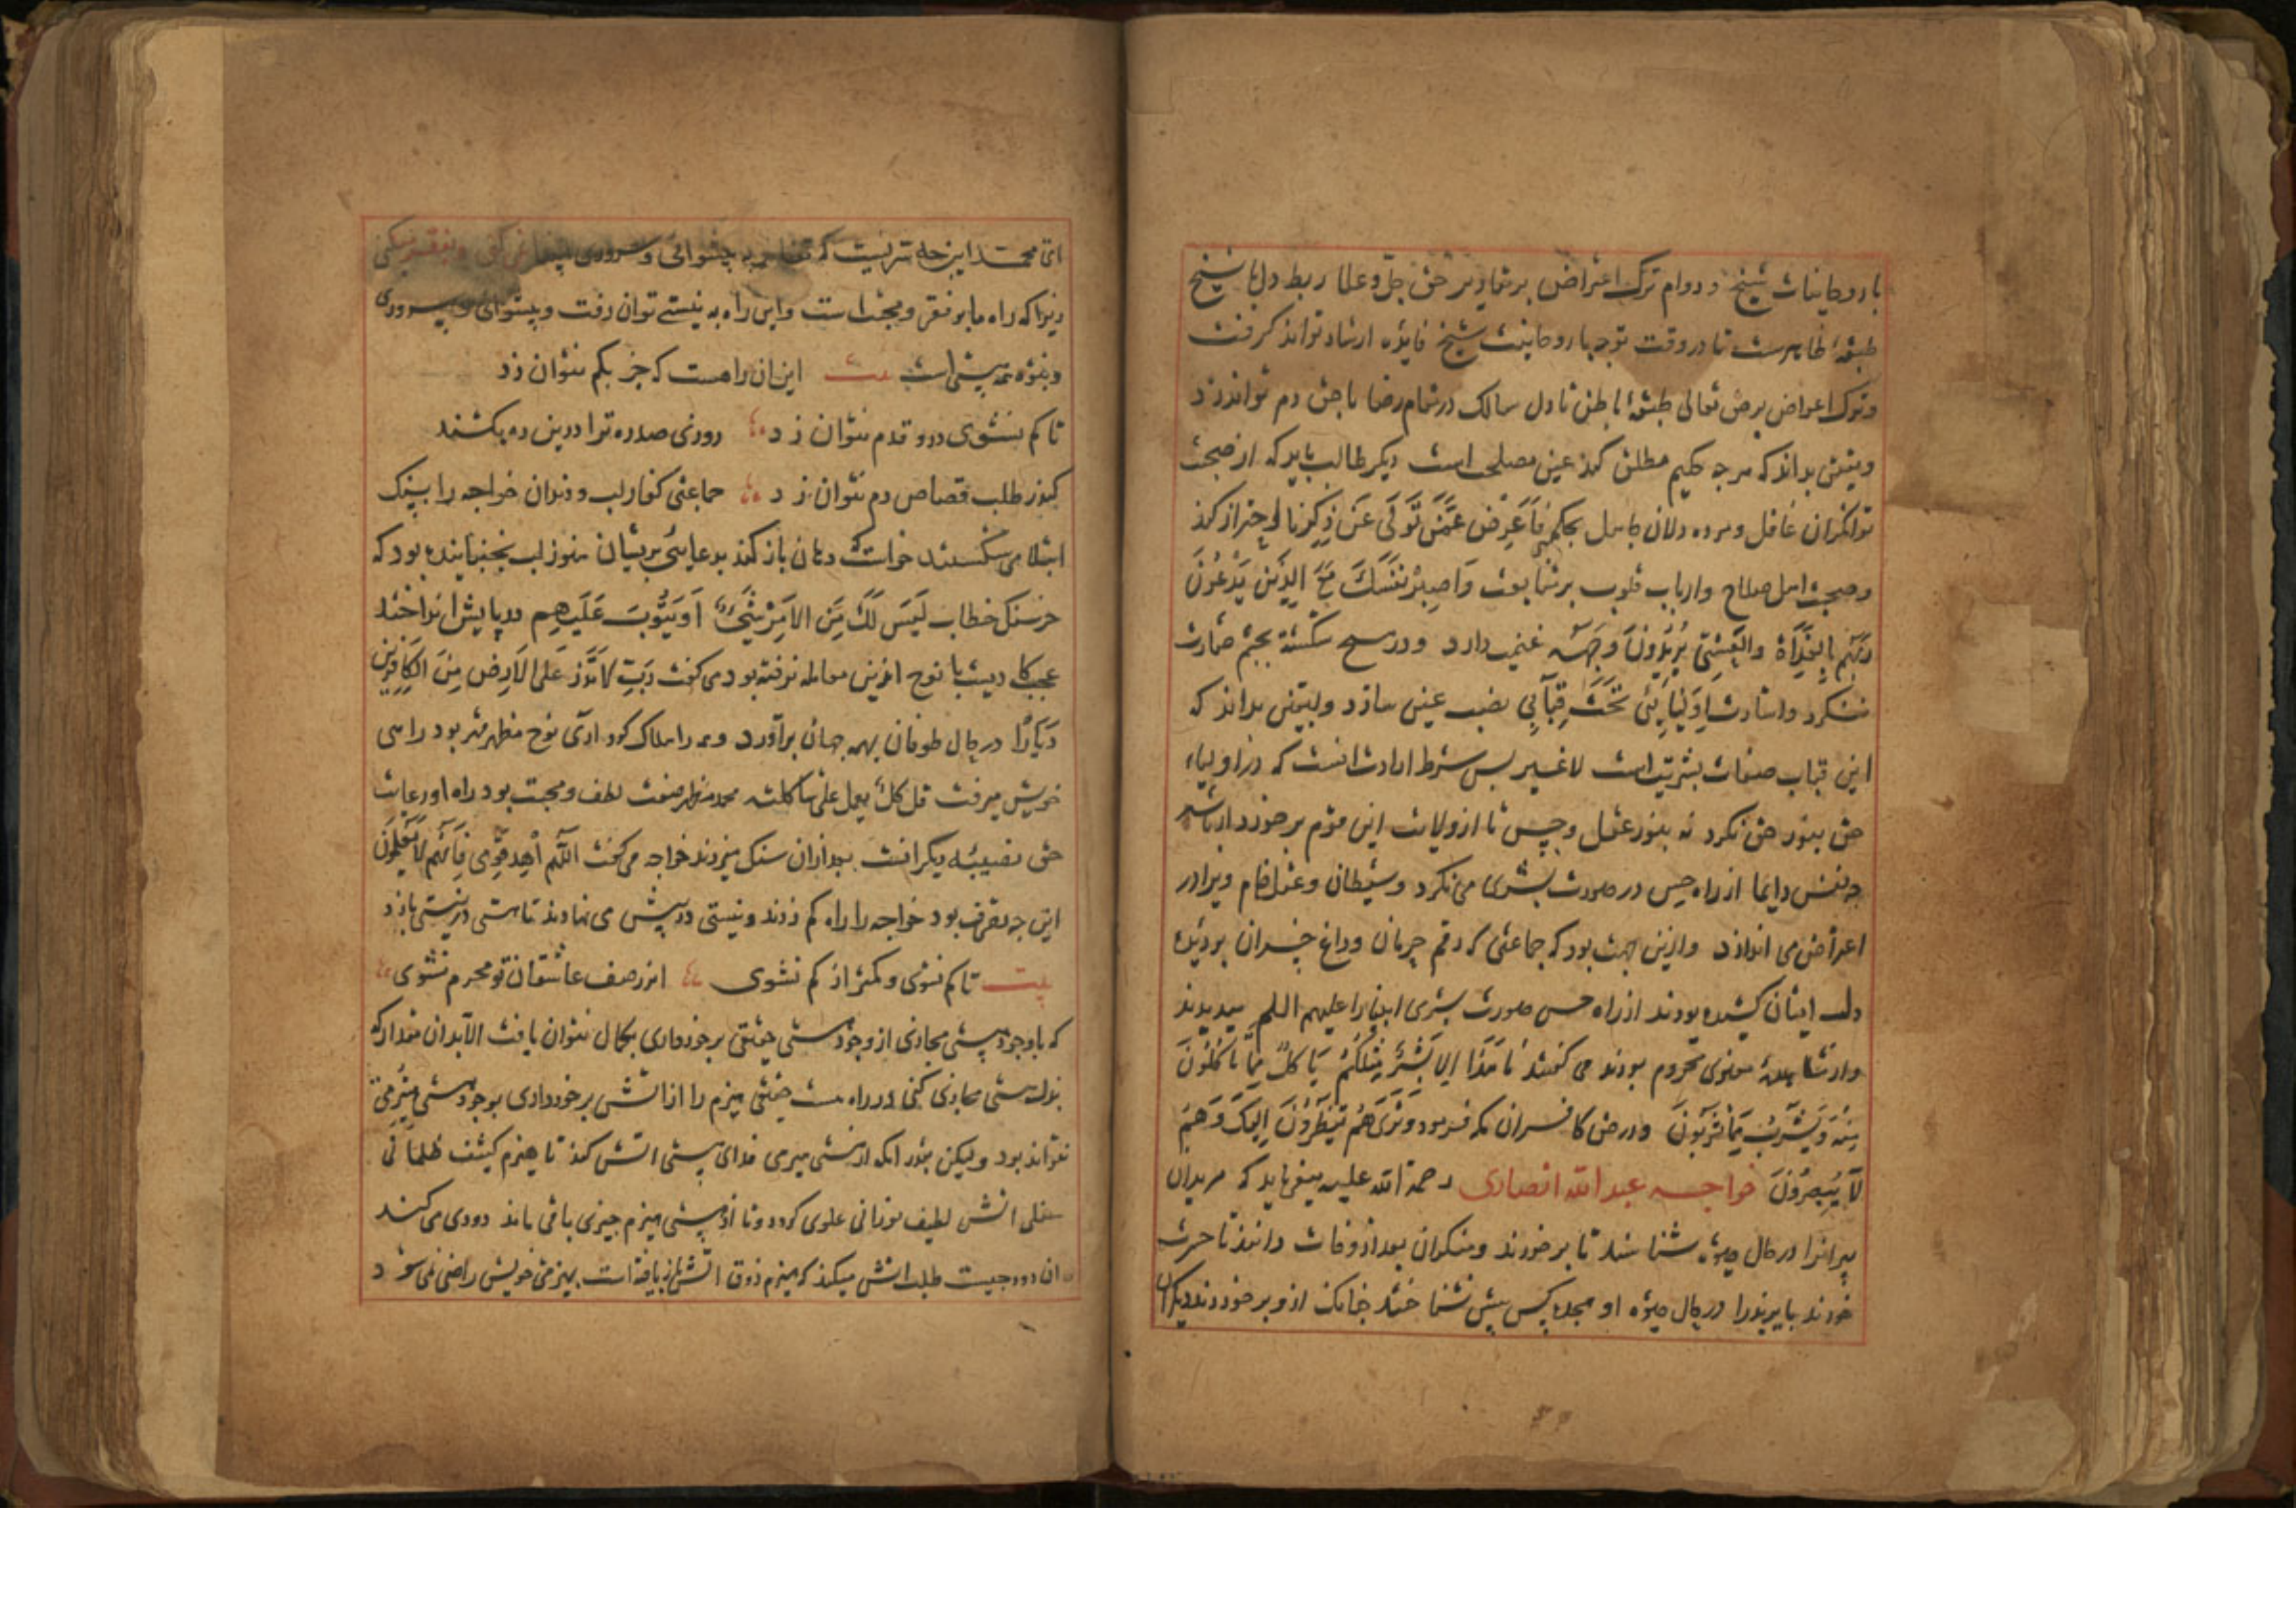 با روحانیات شیخ و دوام ترک اعتراض بر شماو بر حق جل و علا ربط دل با شیخ
ظاهرست تا در وقت توجه با روحانیت شیخ فایده ارشاد تواند گرفت
و ترک اعراض بر حق تعالی باطن تا دل سالک در مقام رضا با حق دم تواند زد
و یقین بداند که هرچه حکیم مطلق کند عین مصلحت است دیگر طالب باید که از صحبت
توانگران غافل و مرده دلان کاهل بحکم فَاَعْرِضْ عَمَّنْ تَوَلّٰی عَنْ ذِکْرِنَا احتراز کند
و صحبت اهل صلاح و ارباب قلوب وَاصْبِرْ نَفْسَکَ مَعَ الَّذِینَ یَدْعُونَ
رَبَّهُمْ بِالْغَدَاةِ وَالْعَشِیِّ یُرِیدُونَ وَجْهَهُ غنیمت دارد و در هیچ شکسته بچشم حقارت
ننگرد و اشارت اَوْلِیَائِی تَحْتَ قِبَابِی نصب عین سازد و یقین بداند که
این قباب صفات بشریت است لا غیر پس شرط ارادت آنست که در اولیاء
حق بنور حق نگرد نه بنور عقل و حس تا از ولایت این قوم برخوردار باشد
چه نفس دایما از راه حس در صورت بشری می نگرد و شیطان و عقل خام ویرا در
اعتراض می اندازد و ازین جهت بود که جماعتی که رقم حرمان و داغ خسران بر دیده
دل ایشان کشیده بودند از راه حس صورت بشری انبیا را علیهم السلم میدیدند
و از مشاهدۀ معنوی محروم بودند می گفتند مَا هَذَا اِلَّا بَشَرٌ مِثْلُکُمْ یَاکُلُ مِمَّا تَاکُلُونَ
مِنْهُ وَیَشْرَبُ مِمَّا تَشْرَبُونَ و در حق کافران مکه فرمود وَتَرٰیهُمْ یَنْظُرُونَ اِلَیْکَ وَهُمْ
لَا یُبْصِرُونَ خواجه عبد الله انصاری رحمة الله علیه میفرماید که مریدان
پیرانرا در حال حیوة شناسند تا برخورند و منکران بعد از وفات دانند تا حسرت
خورند بایزید را در حال حیوة او هیچ کس بیش نشناختند چنانک از و برخوردند دیگران
این راه به نیستی توان رفت و پیشوائی و سروری
این آن راهست که جز بکم نتوان زد
تا کم نشوی درو قدم نتوان زد روزی صد ره ترا درین ره بکشند
کز طلب قصاص دم نتوان زد جماعتی کفار لب و دندان خواجه را بسنگ
ابتلا می شکستند خواست که دهان باز کند بدعایی بریشان هنوز لب بجنبانیده بود که
خرسنگ خطاب لَیْسَ لَکَ مِنَ الْاَمْرِ شَیْءٌ اَوْ یَتُوبَ عَلَیْهِمْ در پایش انداختند
عجب کاریست با نوح ازین معامله نرفته بود می گفت رَبِّ لَا تَذَرْ عَلَی الْاَرْضِ مِنَ الْکَافِرِینَ
دَیَّارًا در حال طوفان بهمه جهان برآورد و همه را هلاک کرد آری نوح مظهر قهر بود راهی
خویش میرفت قل کل یعمل علی شاکلته محمد مظهر صفت لطف و محبت بود راه او رعایت
حق دیگر انست بعد از آن سنگ میزدند خواجه می گفت اَللّٰهُمَّ اهْدِ قَوْمِی فَاِنَّهُمْ لَا یَعْلَمُونَ
این چه تصرف بود خواجه را راه کم زدند و نیستی در پیش می نهادند تا هستی در نیستی بازد
بیت تا کم نشوی و کمتر از کم نشوی اندر صف عاشقان تو محرم نشوی
که با وجود هستی مجازی از وجود هستی حقیقی برخورداری بکمال نتوان یافت الا بدان مقدار که
بذل هستی مجازی کنی در راه هست حقیقی هیزم را از آتش برخورداری بوجود هستی هیزمی
نتواند بود ولیکن بقدر آنکه از هستی هیزمی فدای هستی آتش کند تا هیزم کثیف ظلمانی
سفلی آتش لطیف نورانی علوی گردد و تا از هستی هیزم چیزی باقی ماند دودی می کند
آن دود چیست طلب آتش میکند که هیزم ذوق آتش باز یافته است بهیزمی خویش راضی نمی شود